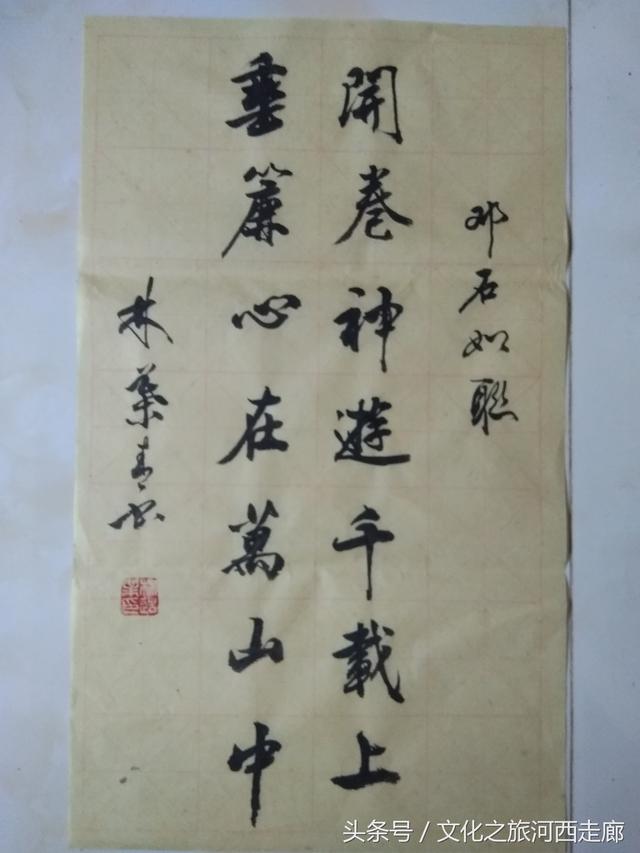 邓石如聯
開卷神遊千載上
垂簾心在萬山中
林葉青书
头条号／文化之旅河西走廊